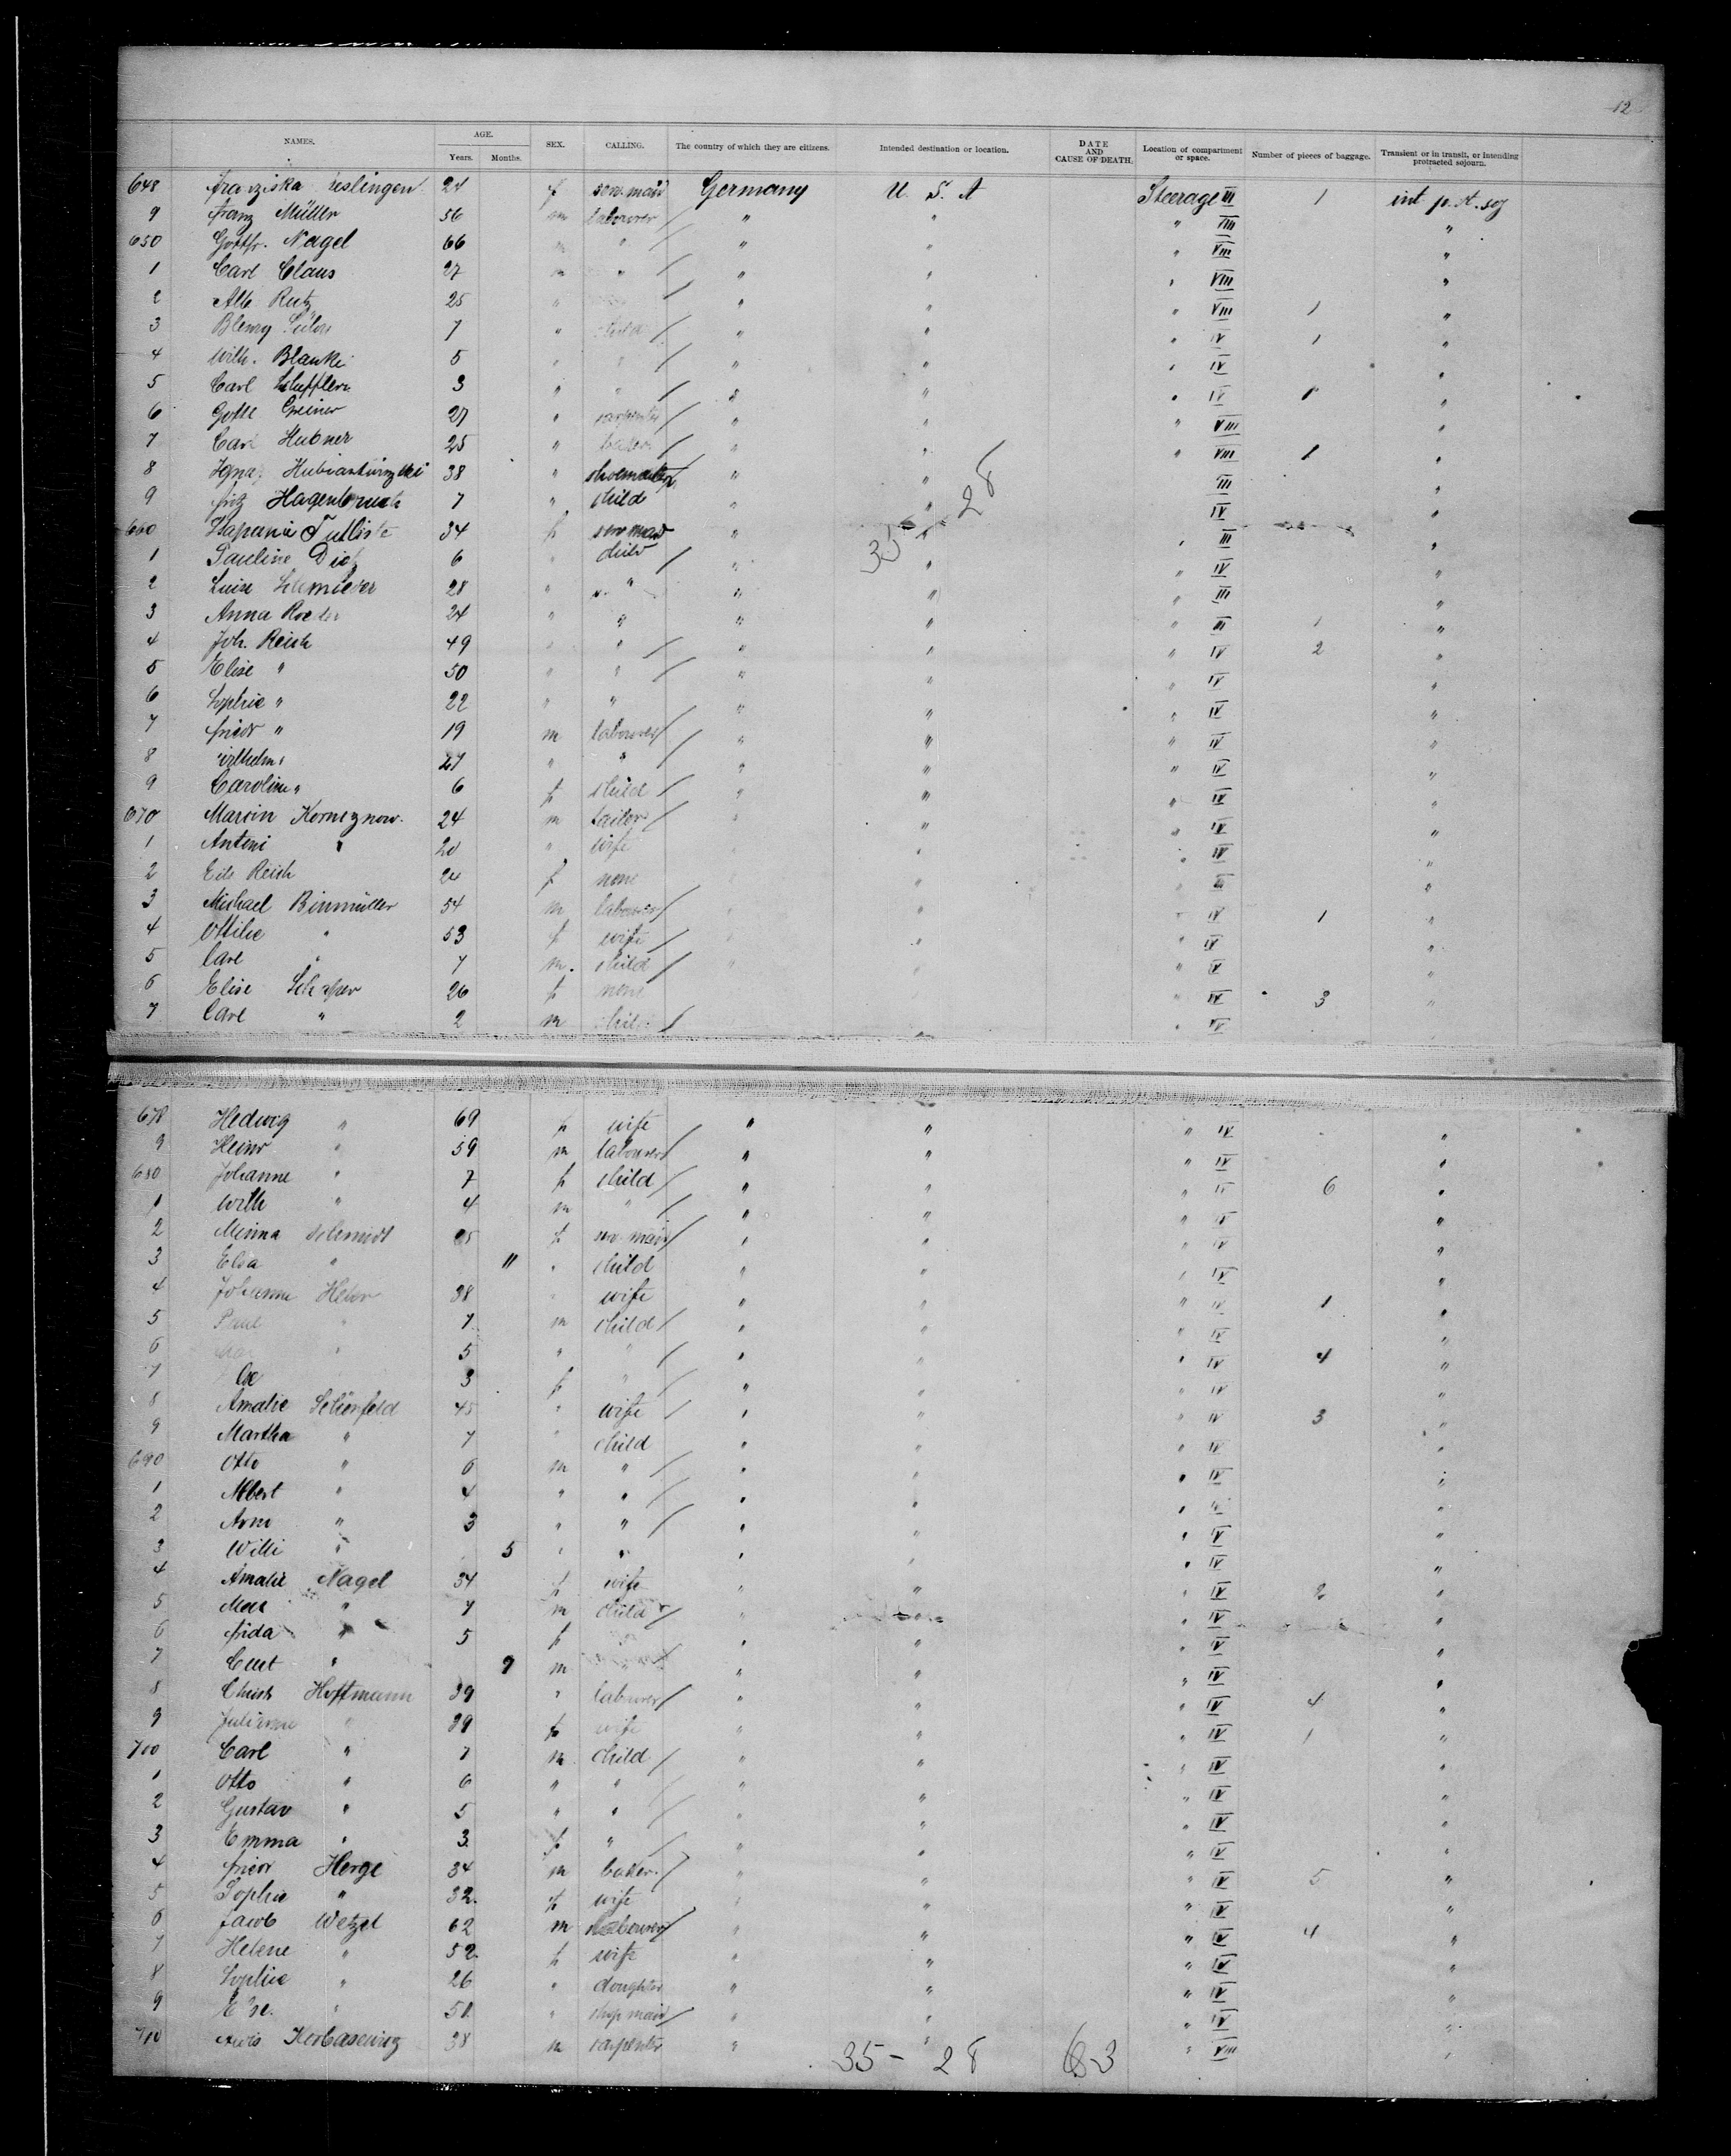 12
NAMES. AGE. Years. Months. SEX. CALLING. The country of which they are citizens. Intended destination or location. DATE AND CAUSE OF DEATH. Location of compartment or space. Number of pieces of baggage. Transient or in transit, or intending protracted sojourn.
648 Franziska 24 f serv. maid Germany U. S. A Steerage III 1 int p. st. soj
9 Franz Müller 56 m labourer " " " VIII "
650 Gottfr. Nagel 66 m " " " " VIII "
1 Carl Claus 27 m " " " " VIII "
2 Alb Rutz 25 " " " " VIII 1 "
3 7 " child " " " IV 1 "
4 Wilh. Blanke 5 " " " " " IV "
5 Carl 3 " " " " " IV 1 "
6 Gottl Greiner 27 " carpenter " " " VIII "
7 Carl Hubner 25 " baker " " " VIII 1 "
8 Ignaz 38 " shoemaker " III "
9 Fritz Hagenbruch 7 " child IV "
660 34 f serv maid " " " III "
35 - 28
1 Pauline Dietz 6 " child " " " IV "
2 Luise 28 " " " " " III "
3 Anna 24 " " " " " III 1 "
4 Joh. Reich 49 " " " " " IV 2 "
5 Elise " 50 " " " " IV "
6 Sophie " 22 " " " " " IV "
7 Friedr " 19 m labourer " " " IV "
8 Wilhelm " 27 " " " " " IV "
9 Caroline " 6 f child " " " IV "
670 Marcin Korneznow. 24 m tailor " " " IV "
1 Antoni " 20 " wife " " IV "
2 Reich 24 f none " " III "
3 Michael Binmüller 54 m labourer " " " IV 1 "
4 Ottilie " 53 f wife " " " IV "
5 Carl " 7 m. child " " " IV "
6 Elise Schaper 26 f none " IV 3 "
7 Carl " 2 m child " " IV
678 Hedwig " 69 f wife " " " IV "
9 Heinr " 59 m labourer " " " IV "
680 Johanne " 7 f child " " " IV 6 "
1 Wilh " 4 m " " " " IV "
2 Minna Schmidt f serv. maid " " " IV "
3 Elsa " 11 " child " " " IV "
4 Johanne 38 " wife " " " IV 1 "
5 Paul " 7 m child " " " IV "
6 " 5 " " " " " IV 4 "
7 3 f " " " " IV "
8 Amalie Schönfeld 45 " wife " " " IV 3 "
9 Martha " 7 " child " " " IV "
690 Otto " 6 m " " " " IV "
1 Albert " 4 " " " " " IV "
2 " 3 " " " " " IV "
3 Willi " 5 " " " " " IV "
4 Amalie Nagel 34 f wife " " " IV 2 "
5 Max " 7 m child " " " IV "
6 Frida " 5 f " " " IV "
7 Curt " 9 m " " " " IV "
8 Christ Hoffmann 39 " labourer " " " IV 4 "
9 Julianne " 39 f wife " " " IV 1 "
700 Carl " 7 m child " " " IV "
1 Otto " 6 " " " " " IV "
2 Gustav " 5 " " " " " IV "
3 Emma " 3 f " " " " IV "
4 Friedr Herge 34 m baker. " " " IV 5 "
5 Sophie " 32. f wife " " " IV "
6 Jacob Wetzel 62 m labourer " " " IV 4 "
7 Helene " 52. f wife " " " IV "
8 Sophie " 26 " doughter " " " IV "
9 " " " " " IV "
710 38 m carpenter " " " VIII "
35 - 28 63